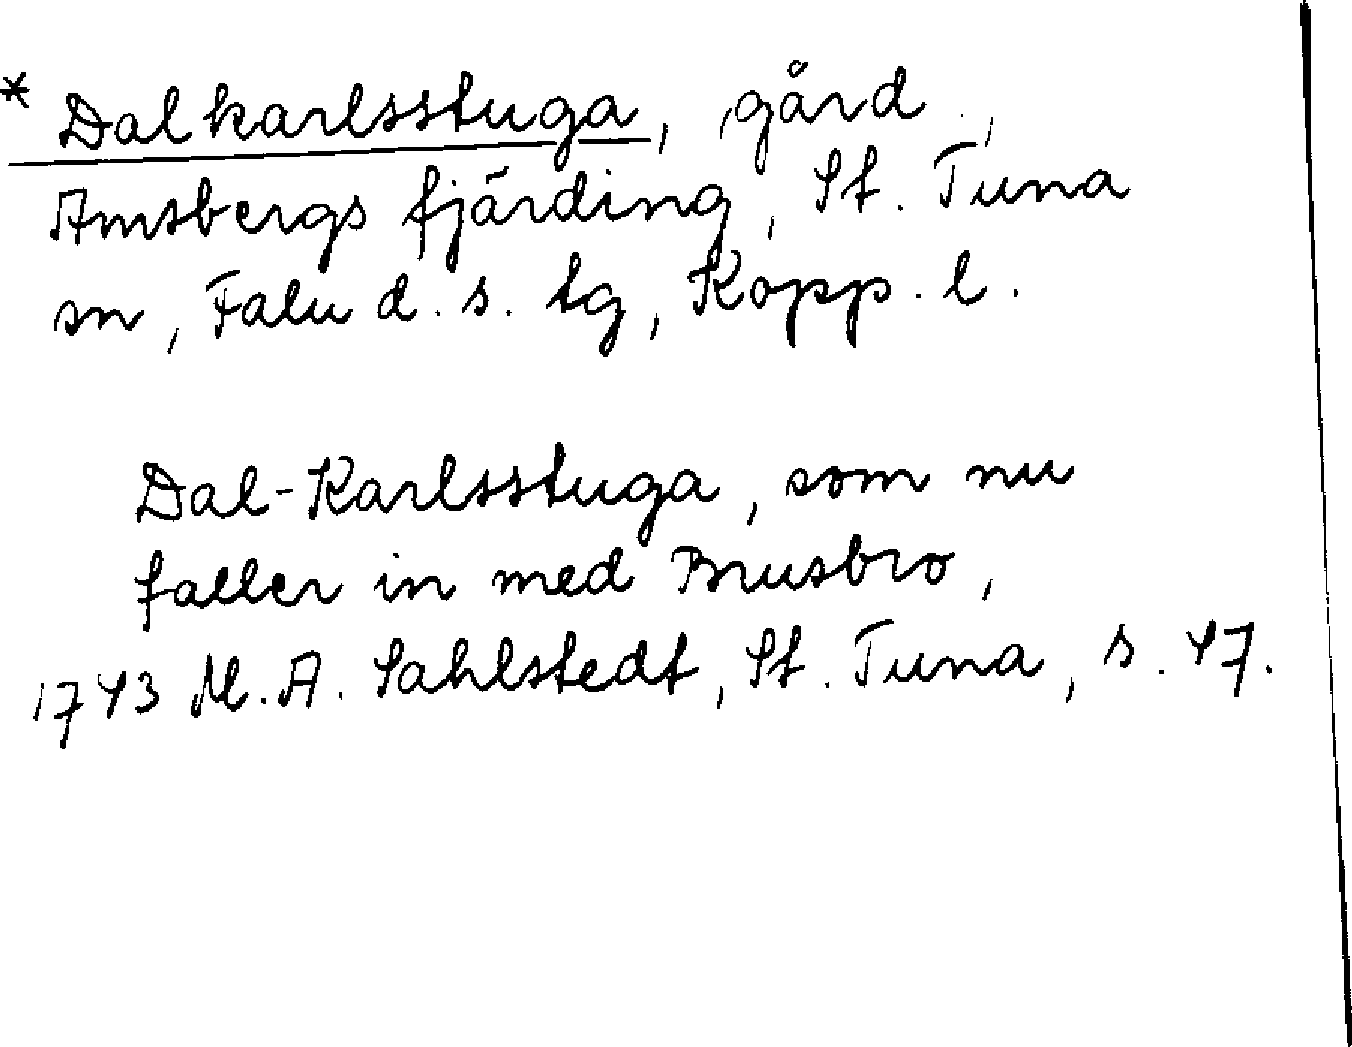 * Dalkarlsstuga, gård,
Amsbergs fjärding, St. Tuna
sn, Falu d. s. tg, Kopp. l.
Dal-Karlsstuga, som nu
faller in med Brusbro,
1743 M. A. Sahlstedt, St. Tuna, s. 47.